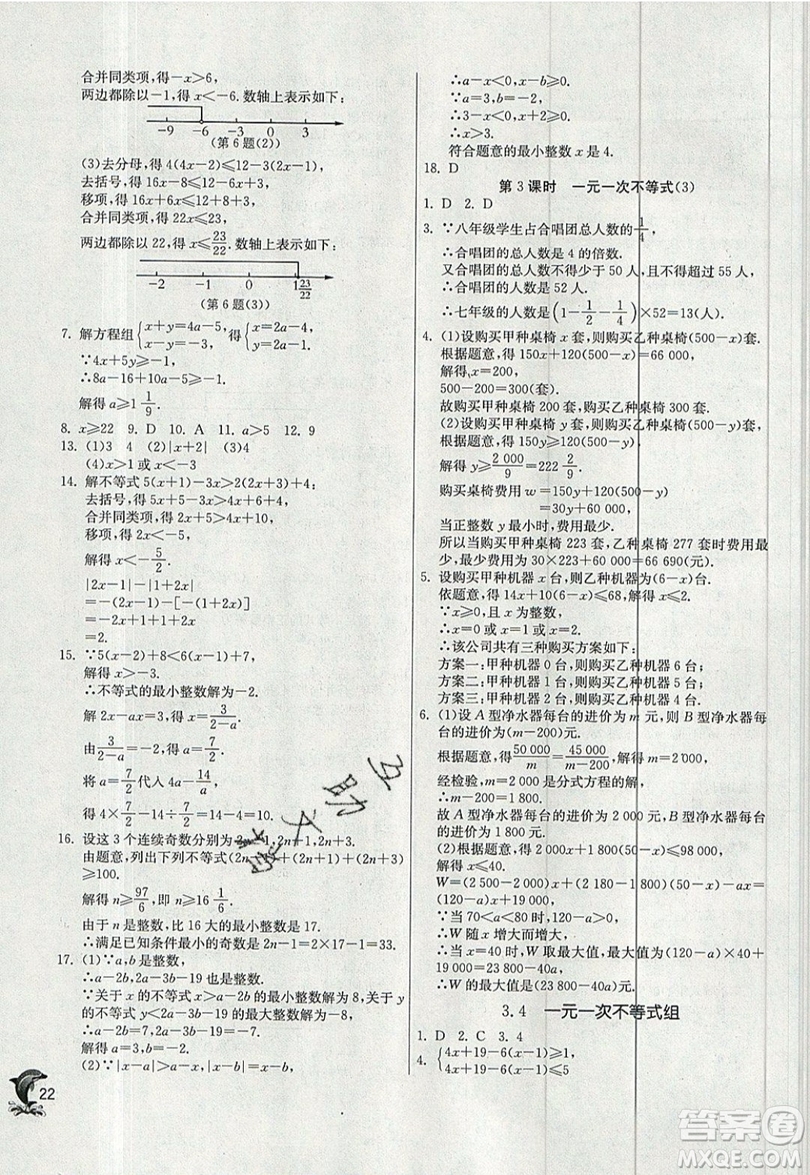 合并同类项,得-x>6,
两边都除以-1,得x<-6.数轴上表示如下:
-9 -6 -3 0 3
(第6题(2))
(3)去分母,得4(4x-2)⩽12-6x,
去括号,得16x-8⩽12-6x,
移项,得16x+6x⩽12+8,
合并同类项,得22x⩽23,
两边都除以22,得x⩽23/22.数轴上表示如下:
-2 -1 0 1 23/22
(第6题(3))
7. 解方程组{x+y=4a-5, x-y=6a-3, 得{x=2a-4,
∵4x+5y⩾-1,
∴8a-16+10a-5⩾-1.
解得a⩾1 1/9.
8. x⩾22 9. D 10. A 11. a>5 12. 9
13. (1)3 4 (2)|x+2| (3)4
(4)x>1或x<-3
14. 解不等式5(x+1)-3x>2(2x+3)+4;
去括号,得5x+5-3x>4x+6+4,
合并同类项,得2x+5>4x+10,
移项,得2x-4x>10-5,
解得x<-5/2.
|2x-1|-|1+2x|
=-(2x-1)-[-(1+2x)]
=-2x+1+1+2x
=2.
15. ∵5(x-2)+8<6(x-1)+7,
解得x>-3.
∴不等式的最小整数解为-2.
解2x-ax=3,得x=3/(2-a).
由3/(2-a)=-2,得a=7/2.
将a=7/2代入4a-14/a,
得4×7/2-14÷7/2=14-4=10.
16. 设这3个连续奇数分别为2n-1,2n+1,2n+3.
由题意,列出下列不等式(2n-1)+(2n+1)+(2n+3)
解得n⩾97/6,即n⩾16 1/6.
由于n是整数,比16大的最小整数是17.
∴满足已知条件最小的奇数是2n-1=2×17-1=33.
17. (1)∵a,b是整数,
∴a-2b,2a-3b-19也是整数.
∵关于x的不等式x>a-2b的最小整数解为8,关于y
的不等式y<2a-3b-19的最大整数解为-8,
∴a-2b=7,2a-3b-19=-7.
解得a=3,b=-2.
(2)∵|x-a|>a-x,|x-b|=x-b,
∴a-x<0,x-b⩾0.
∵a=3,b=-2,
∴3-x<0,x-(-2)⩾0.
∴x>3.
符合题意的最小整数x是4.
18. D
第3课时 一元一次不等式(3)
1. D 2. D
3. ∵八年级学生占合唱团总人数的1/4,
∴合唱团的总人数是4的倍数.
又合唱团的总人数不得少于50人,且不得超过55人,
∴合唱团的总人数是52人.
∴七年级的人数是(1-1/2-1/4)×52=13(人).
4. (1)设购买甲种桌椅x套,则购买乙种桌椅(500-x)套.
根据题意,得150x+120(500-x)=66 000,
解得x=200,
500-200=300(套).
故购买甲种桌椅200套,购买乙种桌椅300套.
(2)设购买甲种桌椅y套,则购买乙种桌椅(500-y)套.
根据题意,得150y⩾120(500-y),
解得y⩾2 000/9=222 2/9.
购买桌椅费用w=150y+120(500-y)
=30y+60 000,
当正整数y最小时,费用最少.
所以当购买甲种桌椅223套,乙种桌椅277套时费用最
少,最少费用为30×223+60 000=66 690(元).
5. 设购买甲种机器x台,则购买乙种机器(6-x)台.
依题意,得14x+10(6-x)⩽68,解得x⩽2.
∵x⩾0,且x为整数,
∴x=0或x=1或x=2.
∴该公司共有三种购买方案如下:
方案一:甲种机器0台,则购买乙种机器6台;
方案二:甲种机器1台,则购买乙种机器5台;
方案三:甲种机器2台,则购买乙种机器4台.
6. (1)设A型净水器每台的进价为m元,则B型净水器每
台的进价为(m-200)元.
根据题意,得50 000/m=45 000/(m-200),解得m=2 000.
经检验,m=2 000是分式方程的解,
∴m-200=1 800.
故A型净水器每台的进价为2 000元,B型净水器每台
的进价为1 800元.
(2)根据题意,得2 000x+1 800(50-x)⩽98 000,
解得x⩽40.
W=(2 500-2 000)x+(2 180-1 800)(50-x)-ax=
(120-a)x+19 000,
∵当70<a<80时,120-a>0,
∴W随x增大而增大,
∴当x=40时,W取最大值,最大值为(120-a)×40+
19 000=23 800-40a,
∴W的最大值是(23 800-40a)元.
3.4 一元一次不等式组
1. D 2. C 3. 4
4. {4x+19-6(x-1)⩾1 4x+19-6(x-1)⩽5
22
答案圈
MXQE.COM